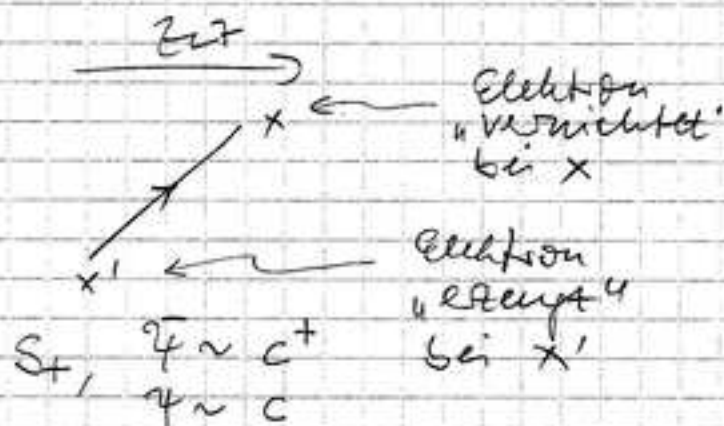 Zeit
x
Elektron
„vernichtet"
bei x
x'
Elektron
„erzeugt"
bei x'
S₊, ψ̄ ~ c⁺
ψ ~ c